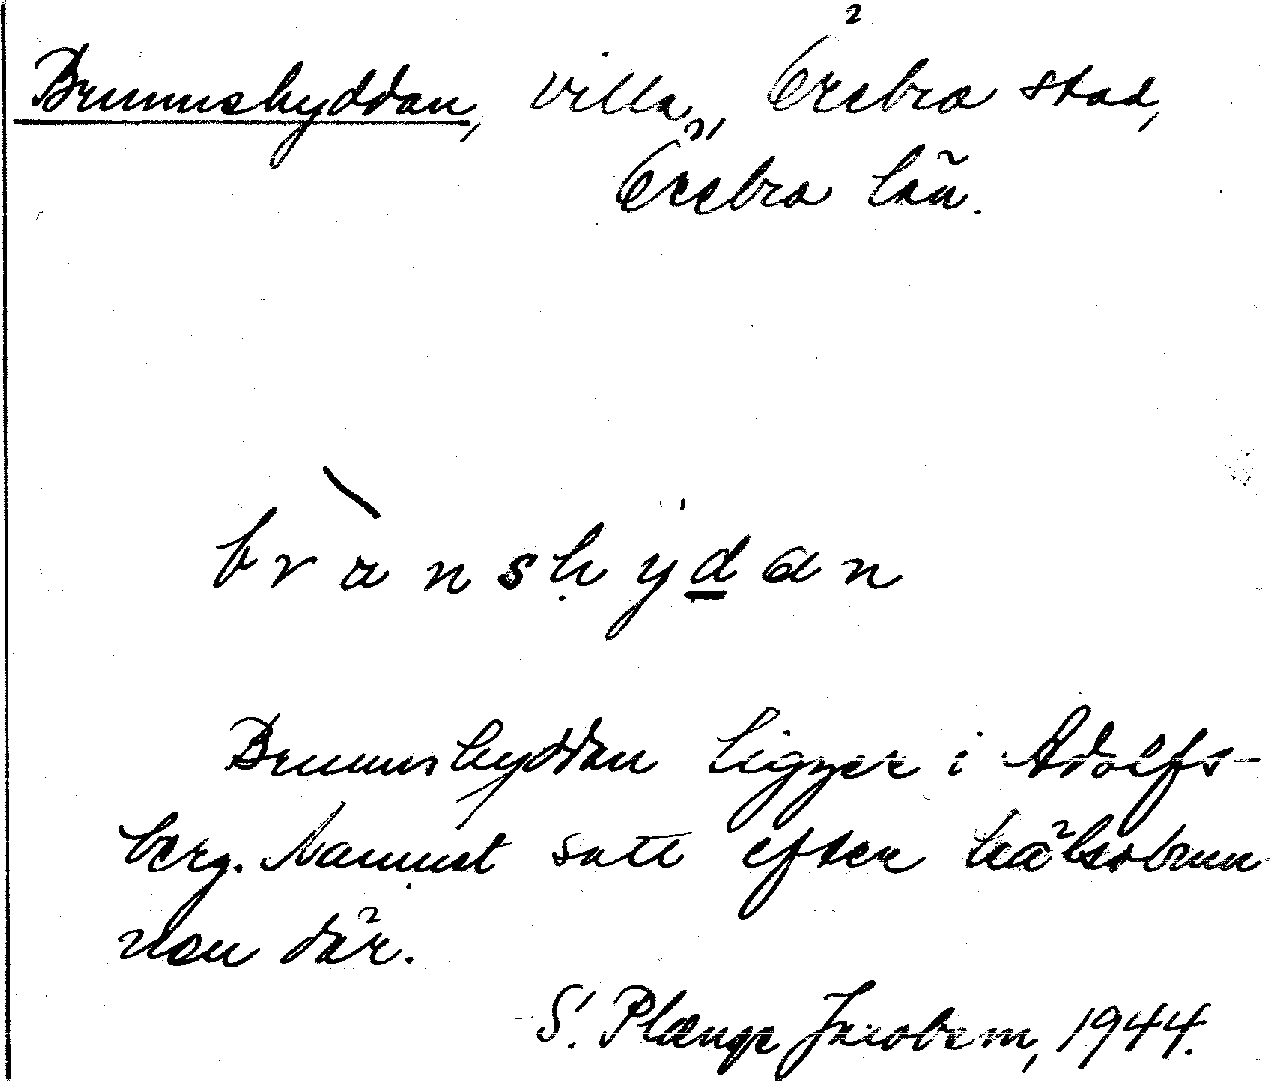 Brunnshyddan, villa, Örebro stad,
Örebro län.
brùnshyd̲an
Brunnshyddan ligger i Adolfs-
berg. Namnet satt efter hälsobrun
nen där.
S. Plænge Jacobson, 1944.